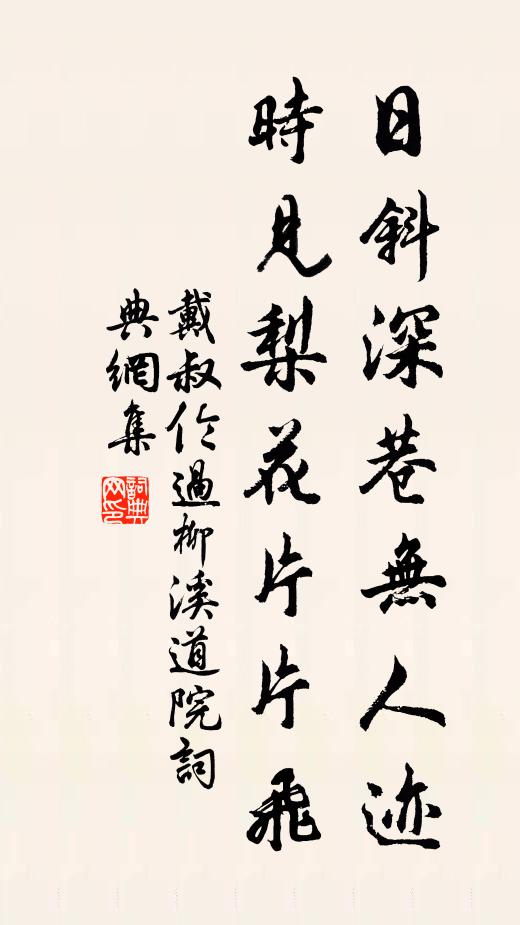 日斜深巷無人迹
時見梨花片片飛
戴叔伦過柳溪道院詞
典網集
詞典
网印